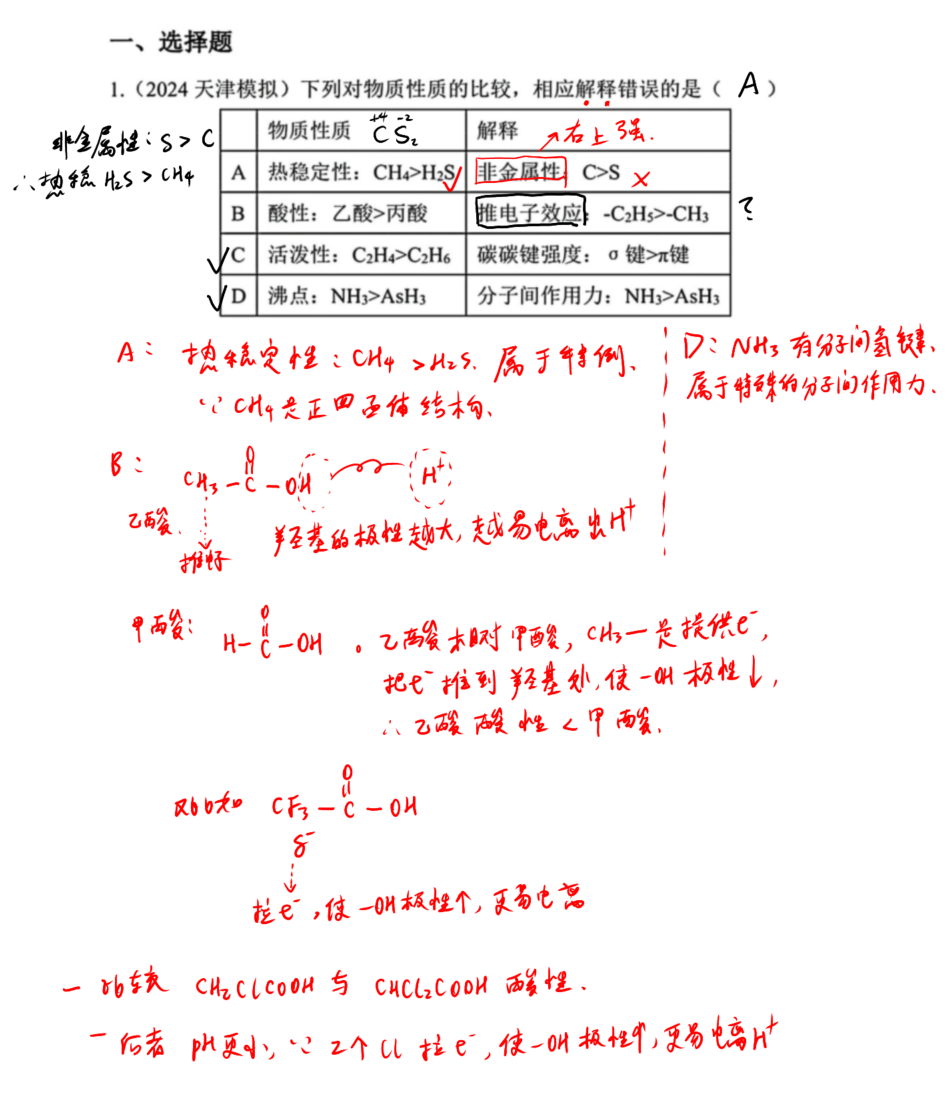 一、选择题
1.（2024 天津模拟）下列对物质性质的比较，相应解释错误的是（ A ）
非金属性：S > C
∴热稳 H₂S > CH₄
物质性质 C⁺⁴ S₂⁻² 解释 ↗右上强.
A 热稳定性：CH₄>H₂S ✓ 非金属性：C>S ×
B 酸性：乙酸>丙酸 推电子效应：-C₂H₅>-CH₃ ?
✓ C 活泼性：C₂H₄>C₂H₆ 碳碳键强度：σ 键>π键
✓ D 沸点：NH₃>AsH₃ 分子间作用力：NH₃>AsH₃
A： 热稳定性：CH₄ > H₂S. 属于特例、
∵ CH₄是正四面体结构、
D：NH₃ 有分子间氢键、
属于特殊的分子间作用力.
B：
O
CH₃ — C — OH H⁺
乙酸.
羟基的极性越大，越易电离出H⁺
甲酸：
O
H — C — OH 。乙酸相对甲酸，CH₃— 是提供e⁻，
把e⁻推到羟基处，使 —OH 极性↓，
∴ 乙酸 酸性 < 甲酸.
O
又比如 CF₃ — C — OH
δ⁻
拉e⁻，使 —OH极性↑，更易电离
— 比较 CH₂ClCOOH 与 CHCl₂COOH 酸性.
— 后者 pH更小，∵ 2个 Cl 拉 e⁻，使—OH 极性↑，更易电离H⁺